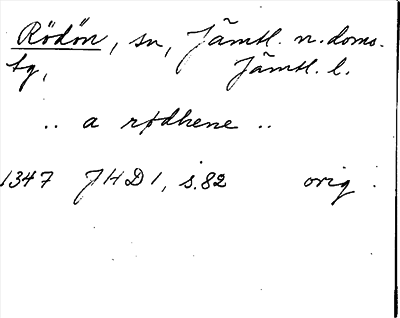 Rödön, sn, Jämtl. n. doms.
tg, Jämtl. l.
.. a rødhene ..
1347 JHD 1, s. 82 orig.